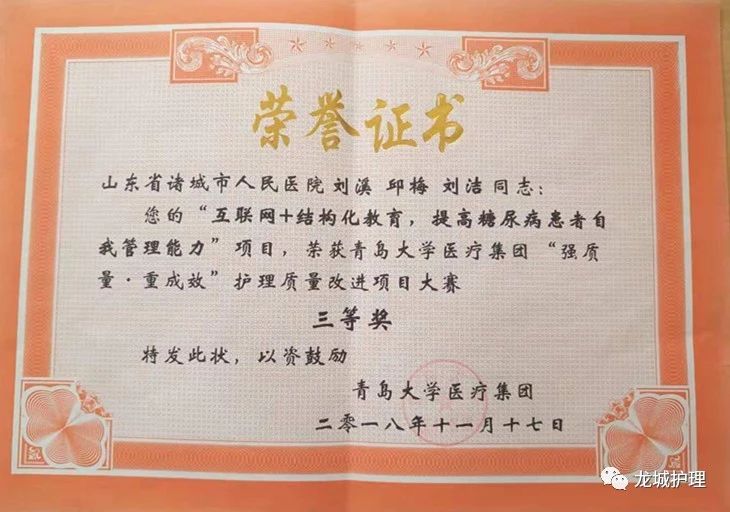 荣誉证书
山东省诸城市人民医院刘溪 邱梅 刘洁同志：
您的“互联网+结构化教育，提高糖尿病患者自
我管理能力”项目，荣获青岛大学医疗集团“强质
量·重成效”护理质量改进项目大赛
三等奖
特发此状，以资鼓励
青岛大学医疗集团
二零一八年十一月十七日
龙城护理